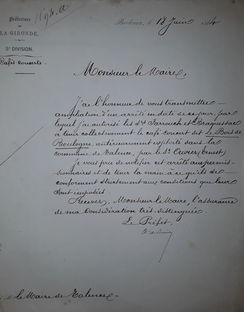 Préfecture
DE
LA GIRONDE.
3e DIVISION.
Cafés concerts
Bordeaux, le 18 Juin
Monsieur le Maire,
J'ai l'honneur de vous transmettre
ampliation d'un arrêté en date de ce jour par
lequel j'ai autorisé les Srs et
à tenir collectivement le café concert dit le Bois de
Boulogne, antérieurement exploité dans la
commune de Talence, par le Sr Cuvrez, Ernest.
Je vous prie de notifier cet arrêté aux permis-
sionnaires et de tenir la main à ce qu'ils se
conforment strictement aux conditions qui leur
sont imposées.
Recevez, Monsieur le Maire, l'assurance
de ma considération très distinguée.
Le Préfet,
le Maire de Talence.